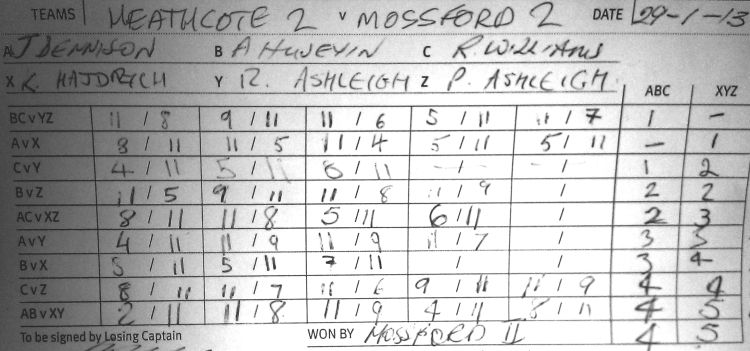 TEAMS HEATHCOTE 2 v MOSSFORD 2 DATE 29-1-13
A J DENNISON B A HUSEYIN C R. Williams
X K. HAJDRICH Y R. ASHLEIGH Z P. ASHLEIGH
ABC XYZ
BC v YZ 11 / 8 9 / 11 11 / 6 5 / 11 11 / 7 1 -
A v X 8 / 11 11 / 5 11 / 4 5 / 11 5 / 11 - 1
C v Y 4 / 11 5 / 11 8 / 11 - / - - / - 1 2
B v Z 11 / 5 9 / 11 11 / 8 11 / 9 / 2 2
AC v XZ 8 / 11 11 / 8 5 / 11 6 / 11 / 2 3
A v Y 4 / 11 11 / 9 11 / 9 11 / 7 / 3 3
B v X 5 / 11 5 / 11 7 / 11 / / 3 4
C v Z 8 / 11 11 / 7 11 / 6 9 / 11 11 / 9 4 4
AB v XY 2 / 11 11 / 8 11 / 9 4 / 11 8 / 11 4 5
To be signed by Losing Captain WON BY MOSSFORD II 4 5